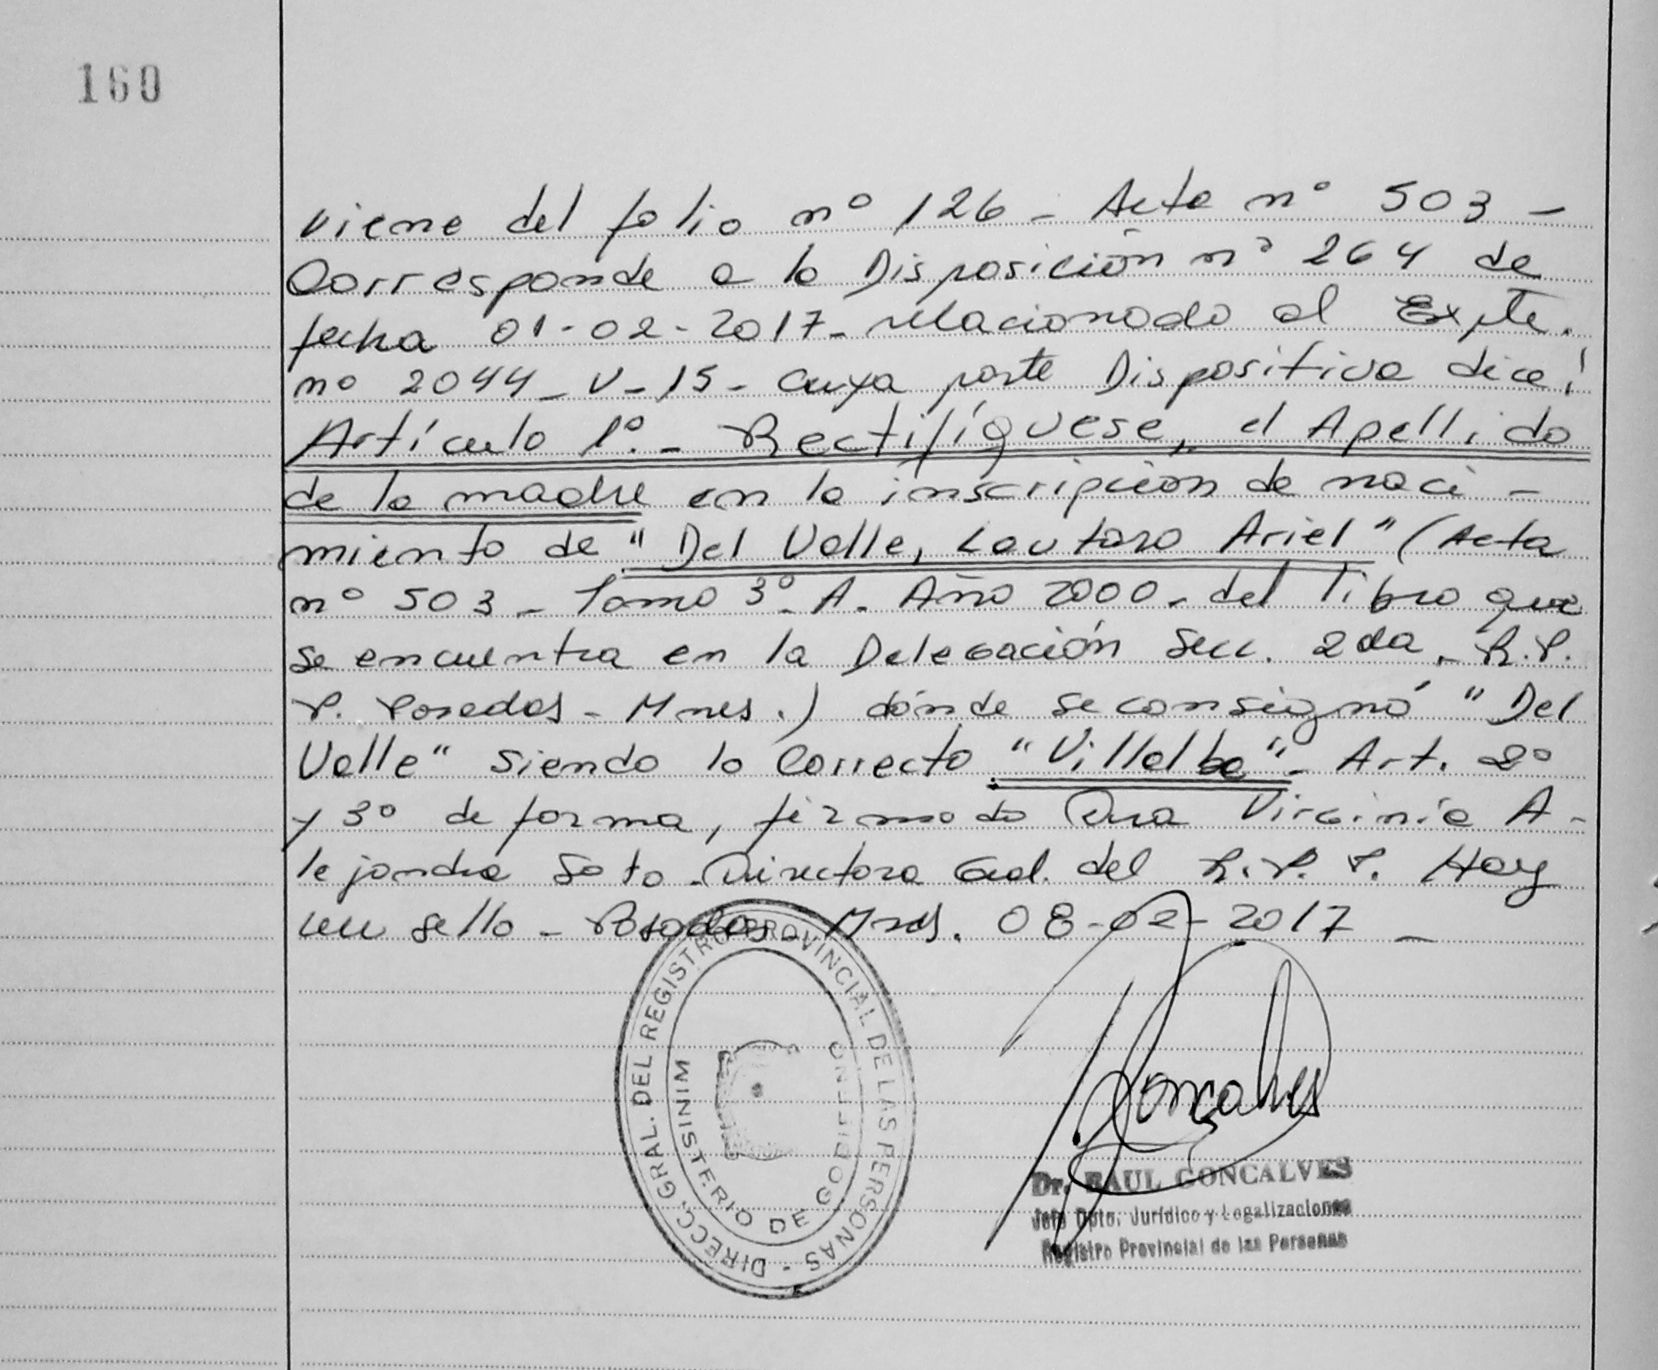 160
Viene del folio nº 126 - Acta nº 503 -
Corresponde a la Disposición nº 264 de
fecha 01-02-2017- relacionado al Expte.
nº 2044-V-15- cuya parte Dispositiva dice:
Artículo 1º.- Rectifíquese, el Apellido
de la madre en la inscripción de naci-
miento de "Del Valle, Lautaro Ariel" (Acta
nº 503- Tomo 3º- A. Año 2000- del libro que
se encuentra en la Delegación Secc. 2da. R.P.
P. Posadas- Mnes.) dónde se consignó "Del
Valle" siendo lo correcto "Villalba"- Art. 2º
y 3º de forma, firmado Dra Virginia A-
lejandra Soto- Directora Gral. del R.P.P. Hay
un sello- Posadas- Mnes. 08-02-2017 -
DIRECC. GRAL. DEL REGISTRO PROVINCIAL DE LAS PERSONAS -
MINISTERIO DE GOBIERNO
Goncalves
Dr. RAUL GONCALVES
Jefe Dpto. Jurídico y Legalizaciones
Registro Provincial de las Personas